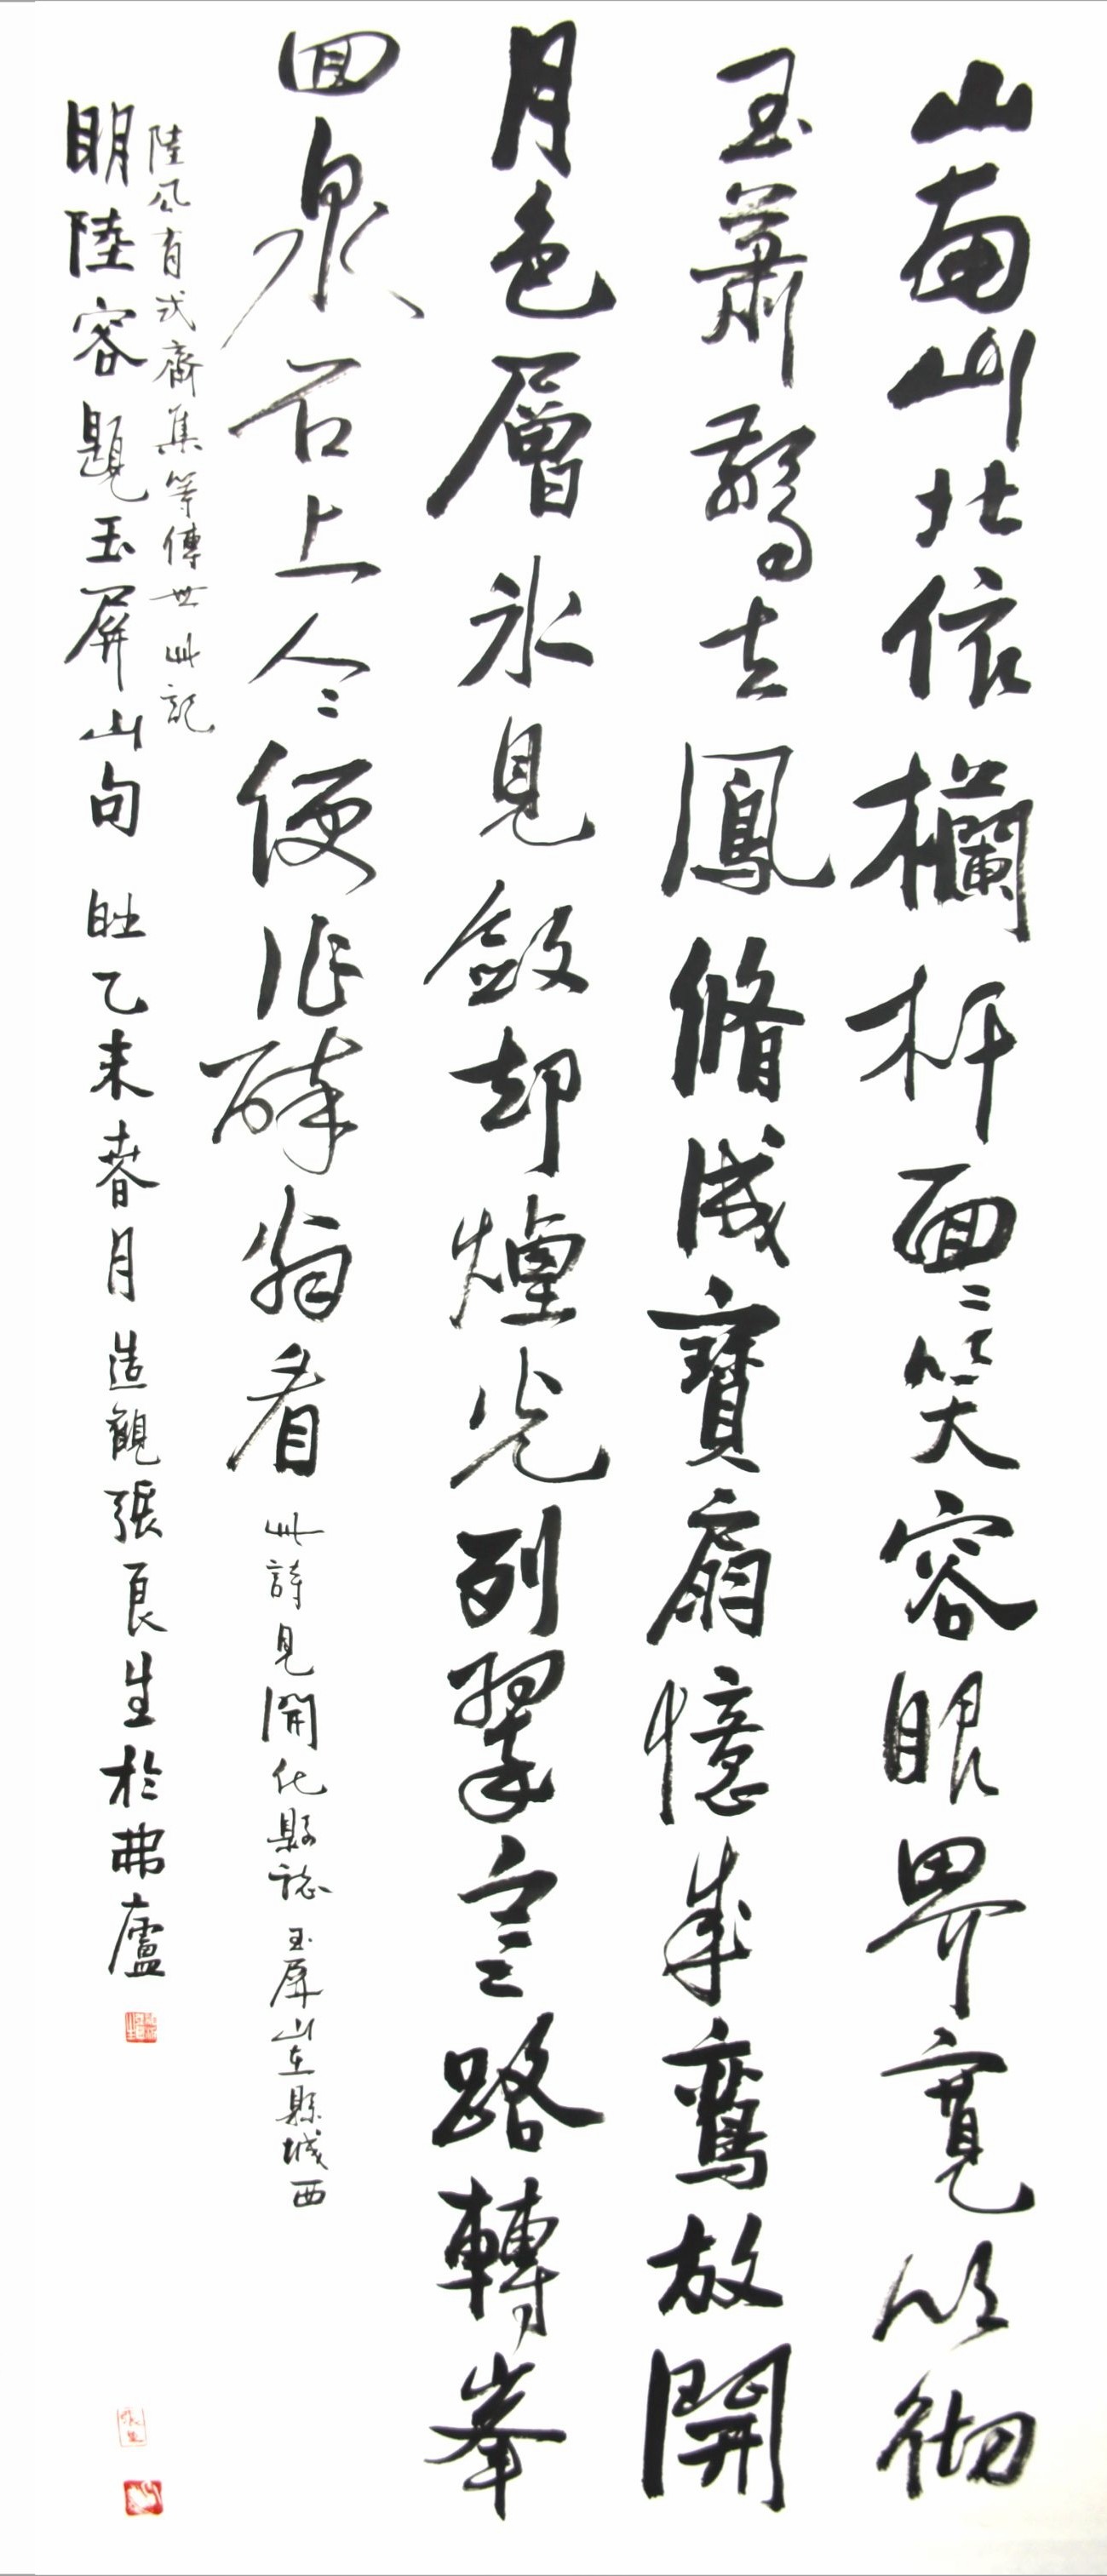 山南山北依欄杆面〻笑容眼界寬吹彻
玉蕭驚去鳳脩成寶扇憶乘鸞放開
月色層氷見斂却煙光列翠寒路轉峯
回泉石上人〻便作醉翁看
此詩見開化縣誌玉屏山在縣城西
陸公有式齋集等傳世此記
明陸容題玉屏山句 旹乙未春月造觀張良生於弗廬